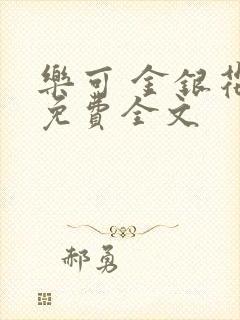 樂可 金銀花
免費全文
郝勇